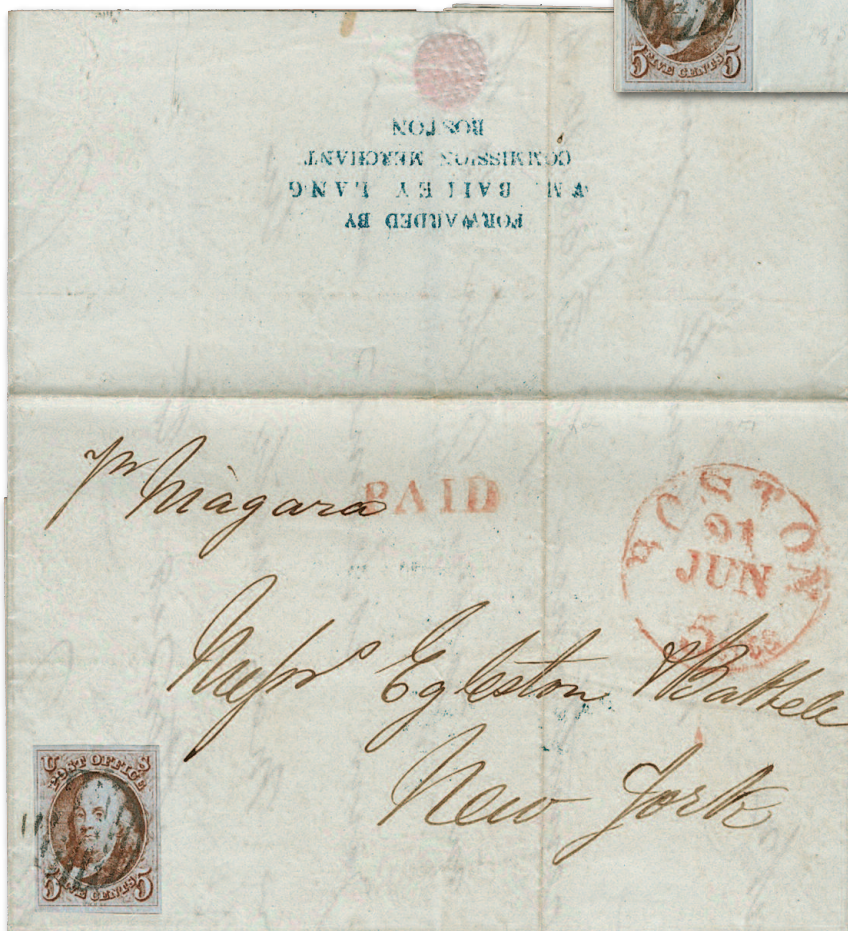 5 FIVE CENTS 5
FORWARDED BY
WM. BAILEY LANG
COMMISSION MERCHANT.
BOSTON
pr Niagara
PAID
BOSTON
21
JUN
5 cts
Messrs Egleston & Battell
New York
U S
POST OFFICE
5 FIVE CENTS 5